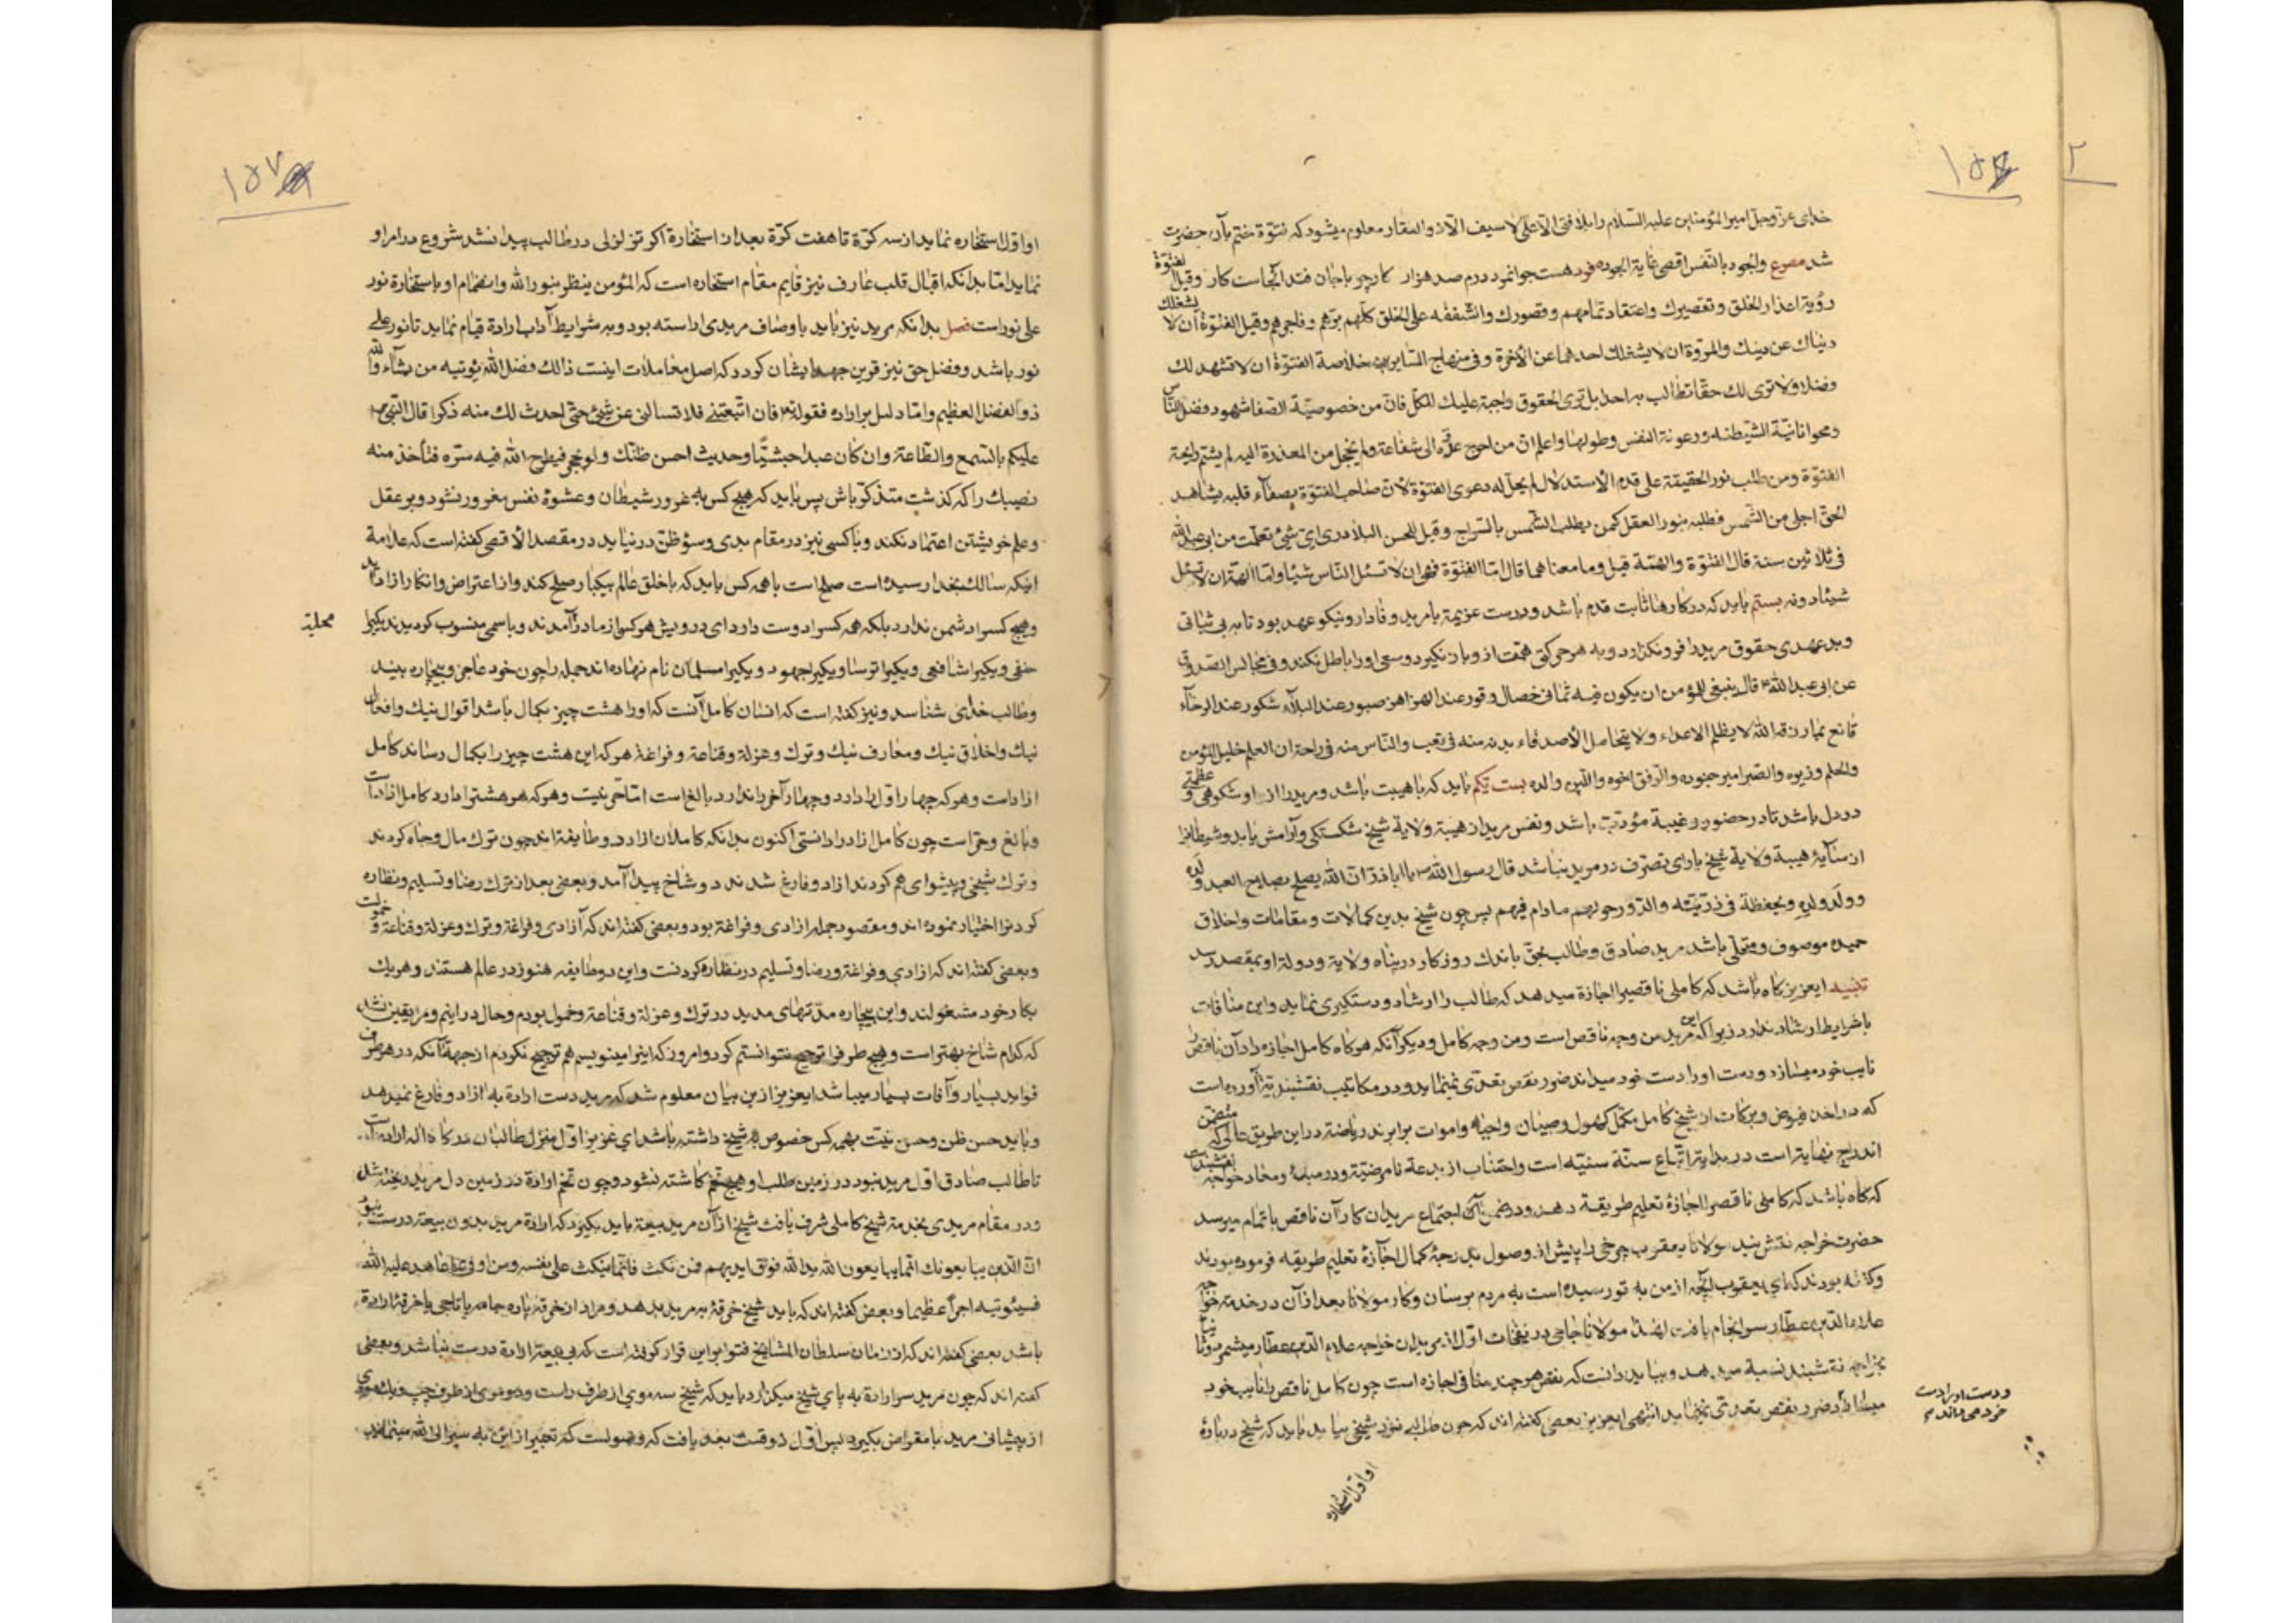 خدای عزّ وجلّ امیر المؤمنین علیه السّلام را بلا فتی الّا علی لا سیف الّا ذو الفقار معلوم میشود که فتوّة ختم بآن حضرت
شد مصرع والجود بالنّفس اقصی غایة الجود فرد هست جوانمرد درم صد هزار کار چو باجان فتد آنجاست کار وقیل الفتوّة
رؤیة اعذار الخلق وتقصیرك واعتقاد تمامهم وقصورك والشّفقه علی الخلق کلّهم برّهم وفاجرهم وقیل الفتوّة أن لا یشغلك
دنیاك عن دینك والمروّة ان لا یشغلك احدهما عن الآخرة وفی منهاج السّایرین خلاصة الفتوّة ان لا تشهد لك
فضلا ولا تری لك حقّا تطالب به احد بل تری الحقوق واجبة علیك للکلّ فانّ من خصوصیّة الصّفا شهود فضل النّاس
ومحو انانیّة الشّیطنه ورعونة النفس وطولها واعلم انّ من احوج عدوّه الی شفاعة ولم یخجل من المعذرة الیه لم یشتم رایحة
الفتوّة ومن طلب نور الحقیقة علی قدم الأستدلال لم یحلّ له دعوی الفتوّة لانّ صاحب الفتوّة بصفآء قلبه یشاهد
الحقّ اجلی من الشّمس فطلبه بنور العقل کمن یطلب الشّمس بالسّراج وقیل للحسن البلادری ایّ شیئ تعلّمت من ابی عبد الله
فی ثلاثین سنة قال الفتوّة والهمّة قیل وما معناهما قال امّا الفتوّة فهی ان لا تسئل النّاس شیئا وامّا الهمّة ان لا تسئل
شیئا دونه بستم باید که در کارها ثابت قدم باشد ودرست عزیمة بامرید وفادار ونیکو عهد بود تا به بی ثباتی
وبد عهدی حقوق مرید را فرو نگذارد وبه هر حرکتی همّت ازو باز نگیرد وسعی او را باطل نکند وفی مجالس الصّدوق
عن ابی عبد الله ع قال ینبغی للمؤمن ان یکون فیه ثمانی خصال وقور عند الهزاهز صبور عند البلآء شکور عند الرخآء
قانع بما رزقه الله لا یظلم الاعداء ولا یتحامل الأصدقاء بدنه منه فی تعب والنّاس منه فی راحة ان العلم خلیل المؤمن
والحلم وزیره والصّبر امیر جنوده والرّفق اخوه واللّین والده بیست یکم باید که باهیبت باشد ومرید را از او شکوهی وعظمتی
در دل باشد تا در حضور وغیبة مؤدّب باشد ونفس مرید از هیبة ولایة شیخ شکستگی وآرامش یابد وشیطانرا
از سآیۀ هیبة ولایة شیخ یارای تصرّف در مرید نباشد قال رسول الله ص یا اباذر انّ الله یصلح بصلاح العبد ولده
وولد ولده ویحفظه فی ذرّیّته والدّور حولهم مادام فیهم پس چون شیخ بدین کمالات ومقامات واخلاق
حمیده موصوف ومتحلّی باشد مرید صادق وطالب بحقّ باندك روزکار در پناه ولایة ودولة او بمقصد رسد
تنبیه ایعزیز کاه باشد که کاملی ناقصیرا اجازة میدهد که طالب را ارشاد ودستگیری نماید واین منافات
باشرایط ارشاد ندارد زیرا که این مرید من وجه ناقص است ومن وجه کامل ودیگر آنکه هرکاه کامل اجازه داد آن ناقص را
نایب خود میسازد ودست او را دست خود میداند ضرر نقص تعدّی نمینماید ودر مکاتیب نقشبندیّة آورده است
که در اخذ فیوض وبرکات از شیخ کامل مکمّل کهول وصبیان واحیاء واموات برابرند ریاضة در این طریق تا آنکه متضمّن
اندراج نهایة است در بدایة اتّباع سنّة سنیّه است واجتناب از بدعة نامرضیّة ودر مبدأ ومعاد خواجه نقشبند است
که کاه باشد که کاملی ناقصرا اجازۀ تعلیم طریقة دهد ودر ضمن آن اجتماع مریدان کار آن ناقص باتمام میرسد
حضرت خواجه نقش بند مولانا یعقوب چرخی را پیش از وصول بدرجۀ کمال اجازۀ تعلیم طریقه فرموده بودند
وکفته بودند که ای یعقوب آنچه از من به تو رسیده است به مردم برسان وکار مولانا بعد از آن در خدمة خواجه
علاء الدّین عطّار سرانجام یافت لهذا مولانا جامی در نفحات اوّل از مریدان خواجه علاء الدّین عطّار میشمرد وثانیا
بخواجه نقشبند نسبة میدهد وبباید دانست که نقص هر چند منافی اجازه است چون کامل ناقص را نایب خود
میسازد ضرر نقص تعدّی نمینماید انتهی ایعزیز بعضی کفته اند که چون طالبی نزد شیخی بیاید باید که شیخ در بارۀ
ودست او را دست
خود می داند م
او اوّل استخاره
۱۵۷
او اوّل استخاره نماید از سه کرّة تا هفت کرّة بعد از استخارة اگر تزلزلی در طالب پیدا نشد شروع در امر او
نماید امّا بدانکه اقبال قلب عارف نیز قایم مقام استخاره است که المؤمن ینظر بنور الله وانضمام او باستخارة نور
علی نور است فصل بدانکه مرید نیز باید باوصاف مریدی اراسته بود وبه شرایط آداب ارادة قیام نماید تا نور علی
نور باشد وفضل حق نیز قرین جهد ایشان کردد که اصل معاملات اینست ذالك فضل الله یؤتیه من یشآء والله
ذو الفضل العظیم وامّا دلیل بر اراده فقوله تع فان اتّبعتنی فلا تسألنی عن شیئ حتّی احدث لك منه ذکرا قال النّبی ص
علیکم بالسّمع والطّاعة وان کان عبدا حبشیّا وحدیث احسن ظنّك ولو بحجر فیطرح الله فیه سرّه فتأخذ منه
نصیبك را که کذشت متذکّر باش پس باید که هیچ کس به غرور شیطان وعشوۀ نفس مغرور نشود وبر عقل
وعلم خویشتن اعتماد نکند وباکسی نیز در مقام بدی وسؤ ظنّ در نیاید در مقصد الأقصی کفته است که علامة
اینکه سالك بخدا رسیده است صلح است باهمه کس باید که باخلق عالم بیکبار صلح کند واز اعتراض وانکار ازاد آید
وهیچ کسرا دشمن ندارد بلکه همه کسرا دوست دارد ای درویش هر کس از مادر آمدند وباسمی منسوب کردیدند یکیرا
حنفی ویکیرا شافعی ویکیرا ترسا ویکیرا جهود ویکیرا مسلمان نام نهاده اند جمله را چون خود عاجز وبیچاره بیند
وطالب خدای شناسد ونیز کفته است که انسان کامل آنست که او را هشت چیز بکمال باشد اقوال نیك وافعال
نیك واخلاق نیك ومعارف نیك وترك وعزلة وقناعة وفراغة هر که این هشت چیز را بکمال رساند کامل
ازاد است وهر که چهار اوّل را دارد وچهار آخر را ندارد بالغ است امّا حرّ نیست وهر که هر هشترا دارد کامل ازاد است
وبالغ وحرّ است چون کامل ازاد را دانستی اکنون بدانکه کاملان ازاد دو طایفه اند چون ترك مال وجاه کردند
وترك شیخی وپیشوای هم کردند ازاد وفارغ شدند دو شاخ پیدا آمد وبعضی بعد از ترك رضا وتسلیم ونظاره
کردنرا اختیار نموده اند ومقصود جمله ازادی وفراغة بود وبعضی کفته اند که آزادی وفراغة وترك وعزلة وقناعة وخمولست
وبعضی کفته اند که ازادی وفراغة ورضا وتسلیم در نظاره کردنست واین دو طایفه هنوز در عالم هستند وهریك
بکار خود مشغولند واین بیچاره مدّتهای مدید در ترك وعزلة وقناعة وخمول بودم وحال در اینم ومرا یقین نشد
که کدام شاخ بهتر است وهیچ طرفرا ترجیح نتوانستم کرد وامروز که اینرا مینویسم هم ترجیح نکردم از جهة آنکه در هر طرف
فواید بسیار وآفات بسیار میباشد ایعزیز ازین بیان معلوم شد که مرید دست ارادة به ازاد وفارغ نمیدهد
وباید حسن ظن وحسن نیّت بهمه کس خصوص به شیخ داشته باشد ای عزیز اوّل منزل طالبان درکاه اله ارادتست
تا طالب صادق اوّل مرید نبود در زمین طلب او هیچ تخم کاشته نشود وچون تخم ارادة در زمین دل مرید ریخته شد
ودر مقام مریدی بخدمة شیخ کاملی شرف یافت شیخ از آن مرید بیعة باید بگیرد که ارادة مرید بدون بیعة درست نبود
انّ الّذین یبایعونك انّما یبایعون الله ید الله فوق ایدیهم فمن نکث فانّما ینکث علی نفسه ومن اوفی بما عاهد علیه الله
فسیؤتیه اجرا عظیما وبعضی کفته اند که باید شیخ خرقة به مرید بدهد ومراد از خرقه پاره جامه یا تاجی یا خرقۀ ارادة
باشد بعضی کفته اند که از زمان سلطان المشایخ فتوا بر این قرار کرفته است که بی بیعة ارادة درست نباشد وبعضی
کفته اند که چون مرید سر ارادة به پای شیخ میگزارد باید که شیخ سه موی از طرف راست ودو موی از طرف چپ ویك موی
از پیشانی مرید با مقراض بگیرد پس اوّل ذوقست بعد یافت که وصولست که تعبیر از این به سیر الی الله مینمایند
محلیة